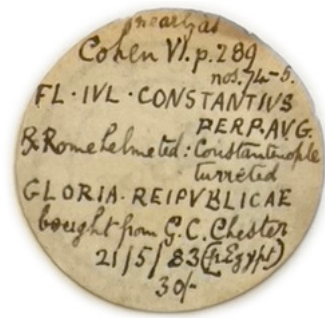 nearly as
Cohen VI. p. 289
nos. 74-5.
FL · IVL · CONSTANTIVS
PERP. AVG.
Rome helmeted: Constantinople
turreted
GLORIA · REIPVBLICAE
bought from G. C. Chester
21/5/83 (fr Egypt)
30/-